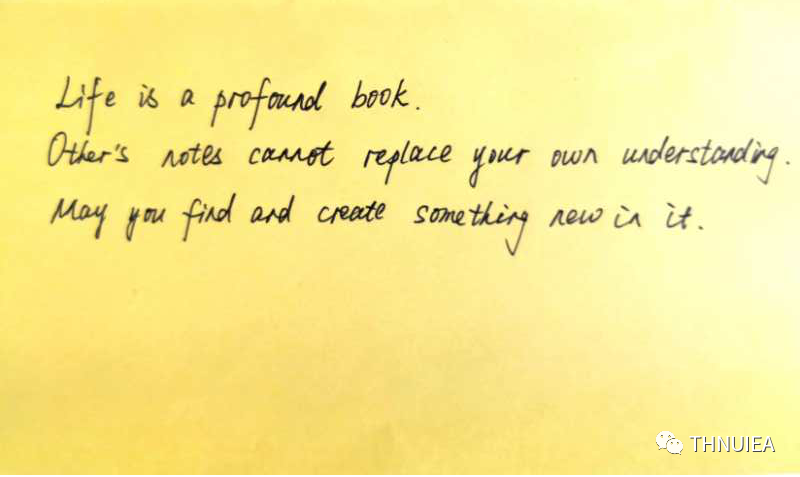 Life is a profound book.
Other's notes cannot replace your own understanding.
May you find and create something new in it.
THNUIEA